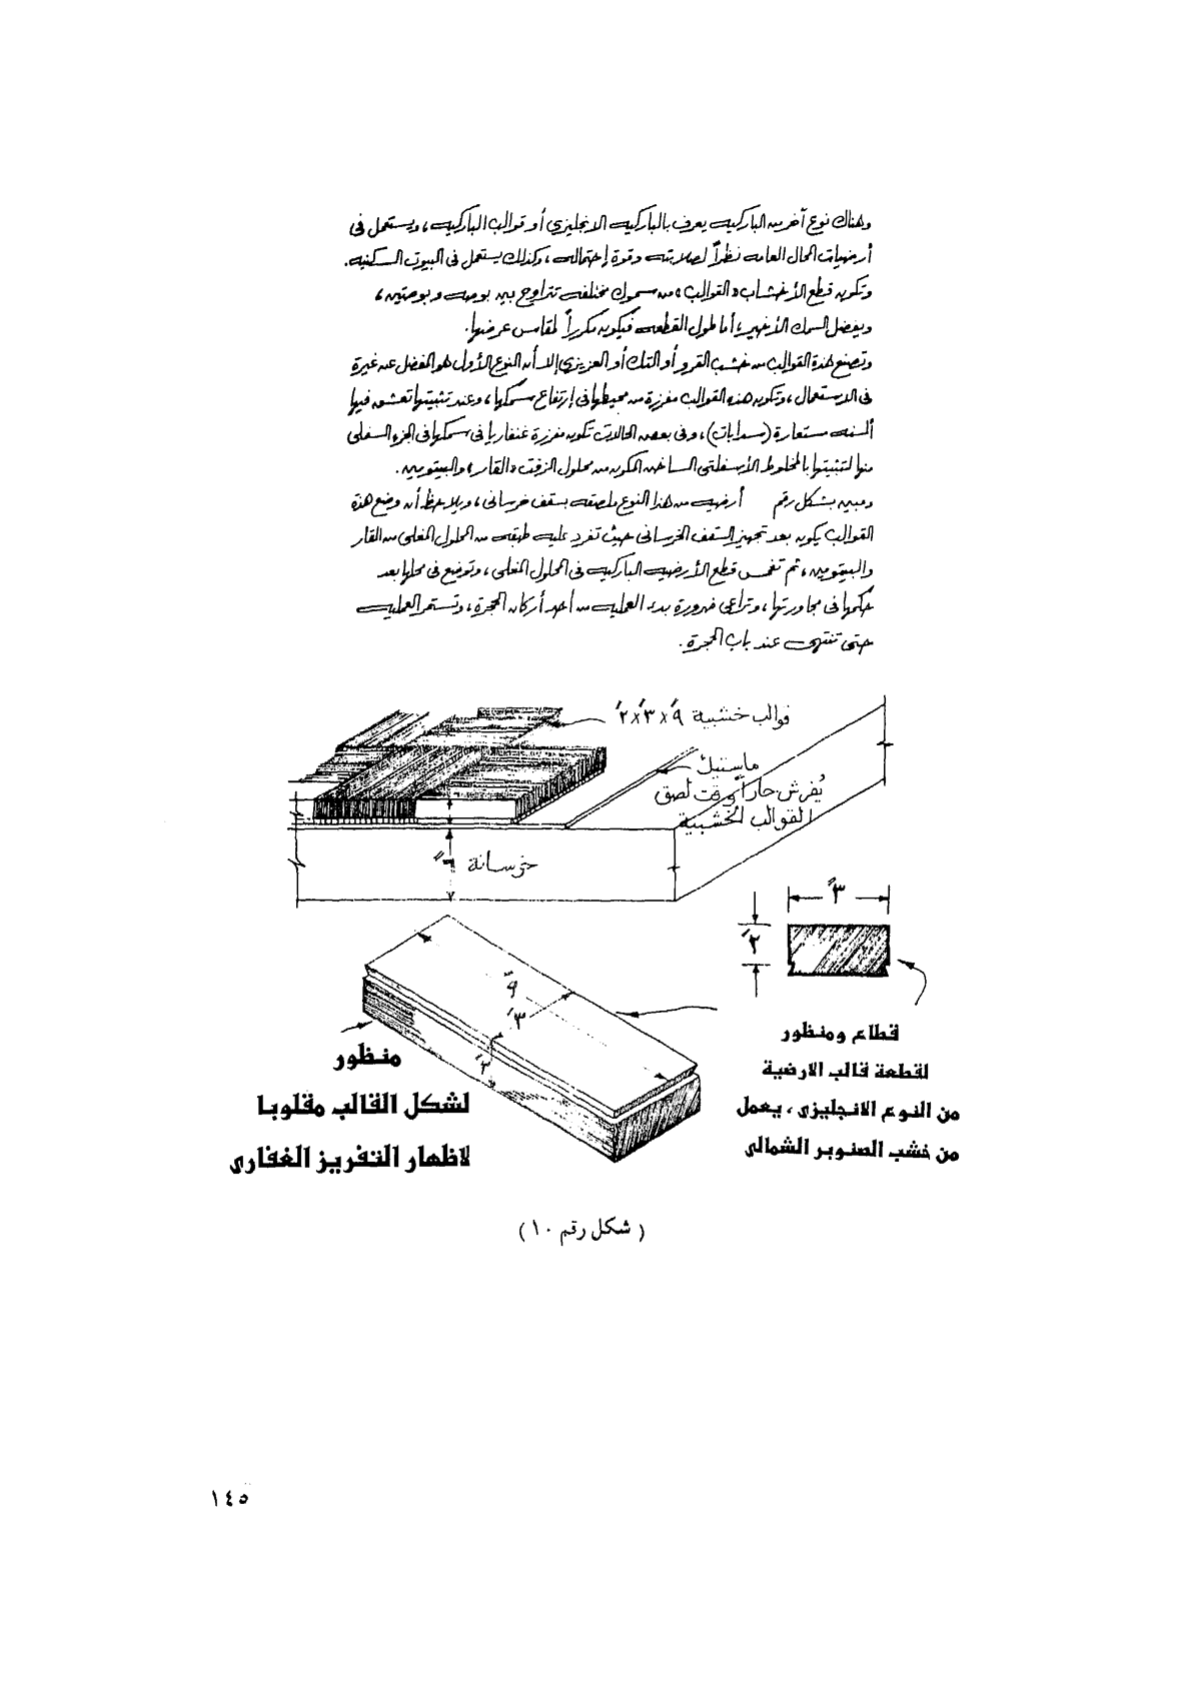 وهناك نوع آخر من الباركيه يعرف بالباركيه الانجليزي أو قوالب الباركيه ، ويستعمل فى
أرضيات المحال العامه نظراً لصلابته وقوة إحتماله ، وكذلك يستعمل فى البيوت السكنيه .
وتكون قطع الأخشاب « القوالب » من سموك مختلفه تتراوح بين بوصه وبوصتين ،
ويفضل السمك الأخير ، أما طول القطعه فيكون مكرراً لمقاس عرضها .
وتصنع هذة القوالب من خشب القرو أو التك أو العزيزي إلا أن النوع الأول هو المفضل عن غيرة
فى الاستعمال ، وتكون هذه القوالب مفرزة من محيطها فى إرتفاع سمكها ، وعند تثبيتها تعشق فيها
ألسنه مستعارة (سدابات) ، وفى بعض الحالات تكون مفرزة غنفاريا فى سمكها فى الجزء السفلى
منها لتثبيتها بالمخلوط الأسفلتى الساخن المكون من محلول الزفت « القار » والبيتومين .
ومبين بشكل رقم أرضيه من هذا النوع ملصقه بسقف خرسانى ، ويلاحظ أن وضع هذة
القوالب يكون بعد تجهيز السقف الخرسانى حيث تفرد عليه طبقه من المحلول المغلى من القار
والبيتومين ، ثم تغمس قطع الأرضيه الباركيه فى المحلول المغلى ، وتوضع فى محلها بعد
حكمها فى مجاورتها ، وتراعى ضرورة بدء العمليه من أحد أركان الحجرة ، وتستمر العمليه
حتى تنتهى عند باب الحجرة .
قوالب خشبية ٩ً x ٣ً x ٢ً
ماستيك
يُفرش حاراً وقت لصق
القوالب الخشبية
خرسانة ٦ً
٣ً
٢ً
٩ً
٣ً
٢ً
قطاع ومنظور
لقطعة قالب الارضية
من النوع الانجليزى ، يعمل
من خشب الصنوبر الشمالى
منظور
لشكل القالب مقلوبا
لاظهار التفريز الغفارى
( شكل رقم ١٠ )
١٤٥